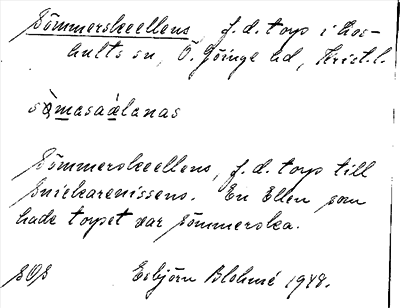 Sömmerskeellens, f.d. torp i Los-
hults sn, Ö. Göinge hd, Krist.l.
sö̀masaálanas
Sömmerskeellens, f.d. torp till
Snickarenissens. En Ellen som
hade torpet var sömmerska.
SOS Esbjörn Blohmé 1948.